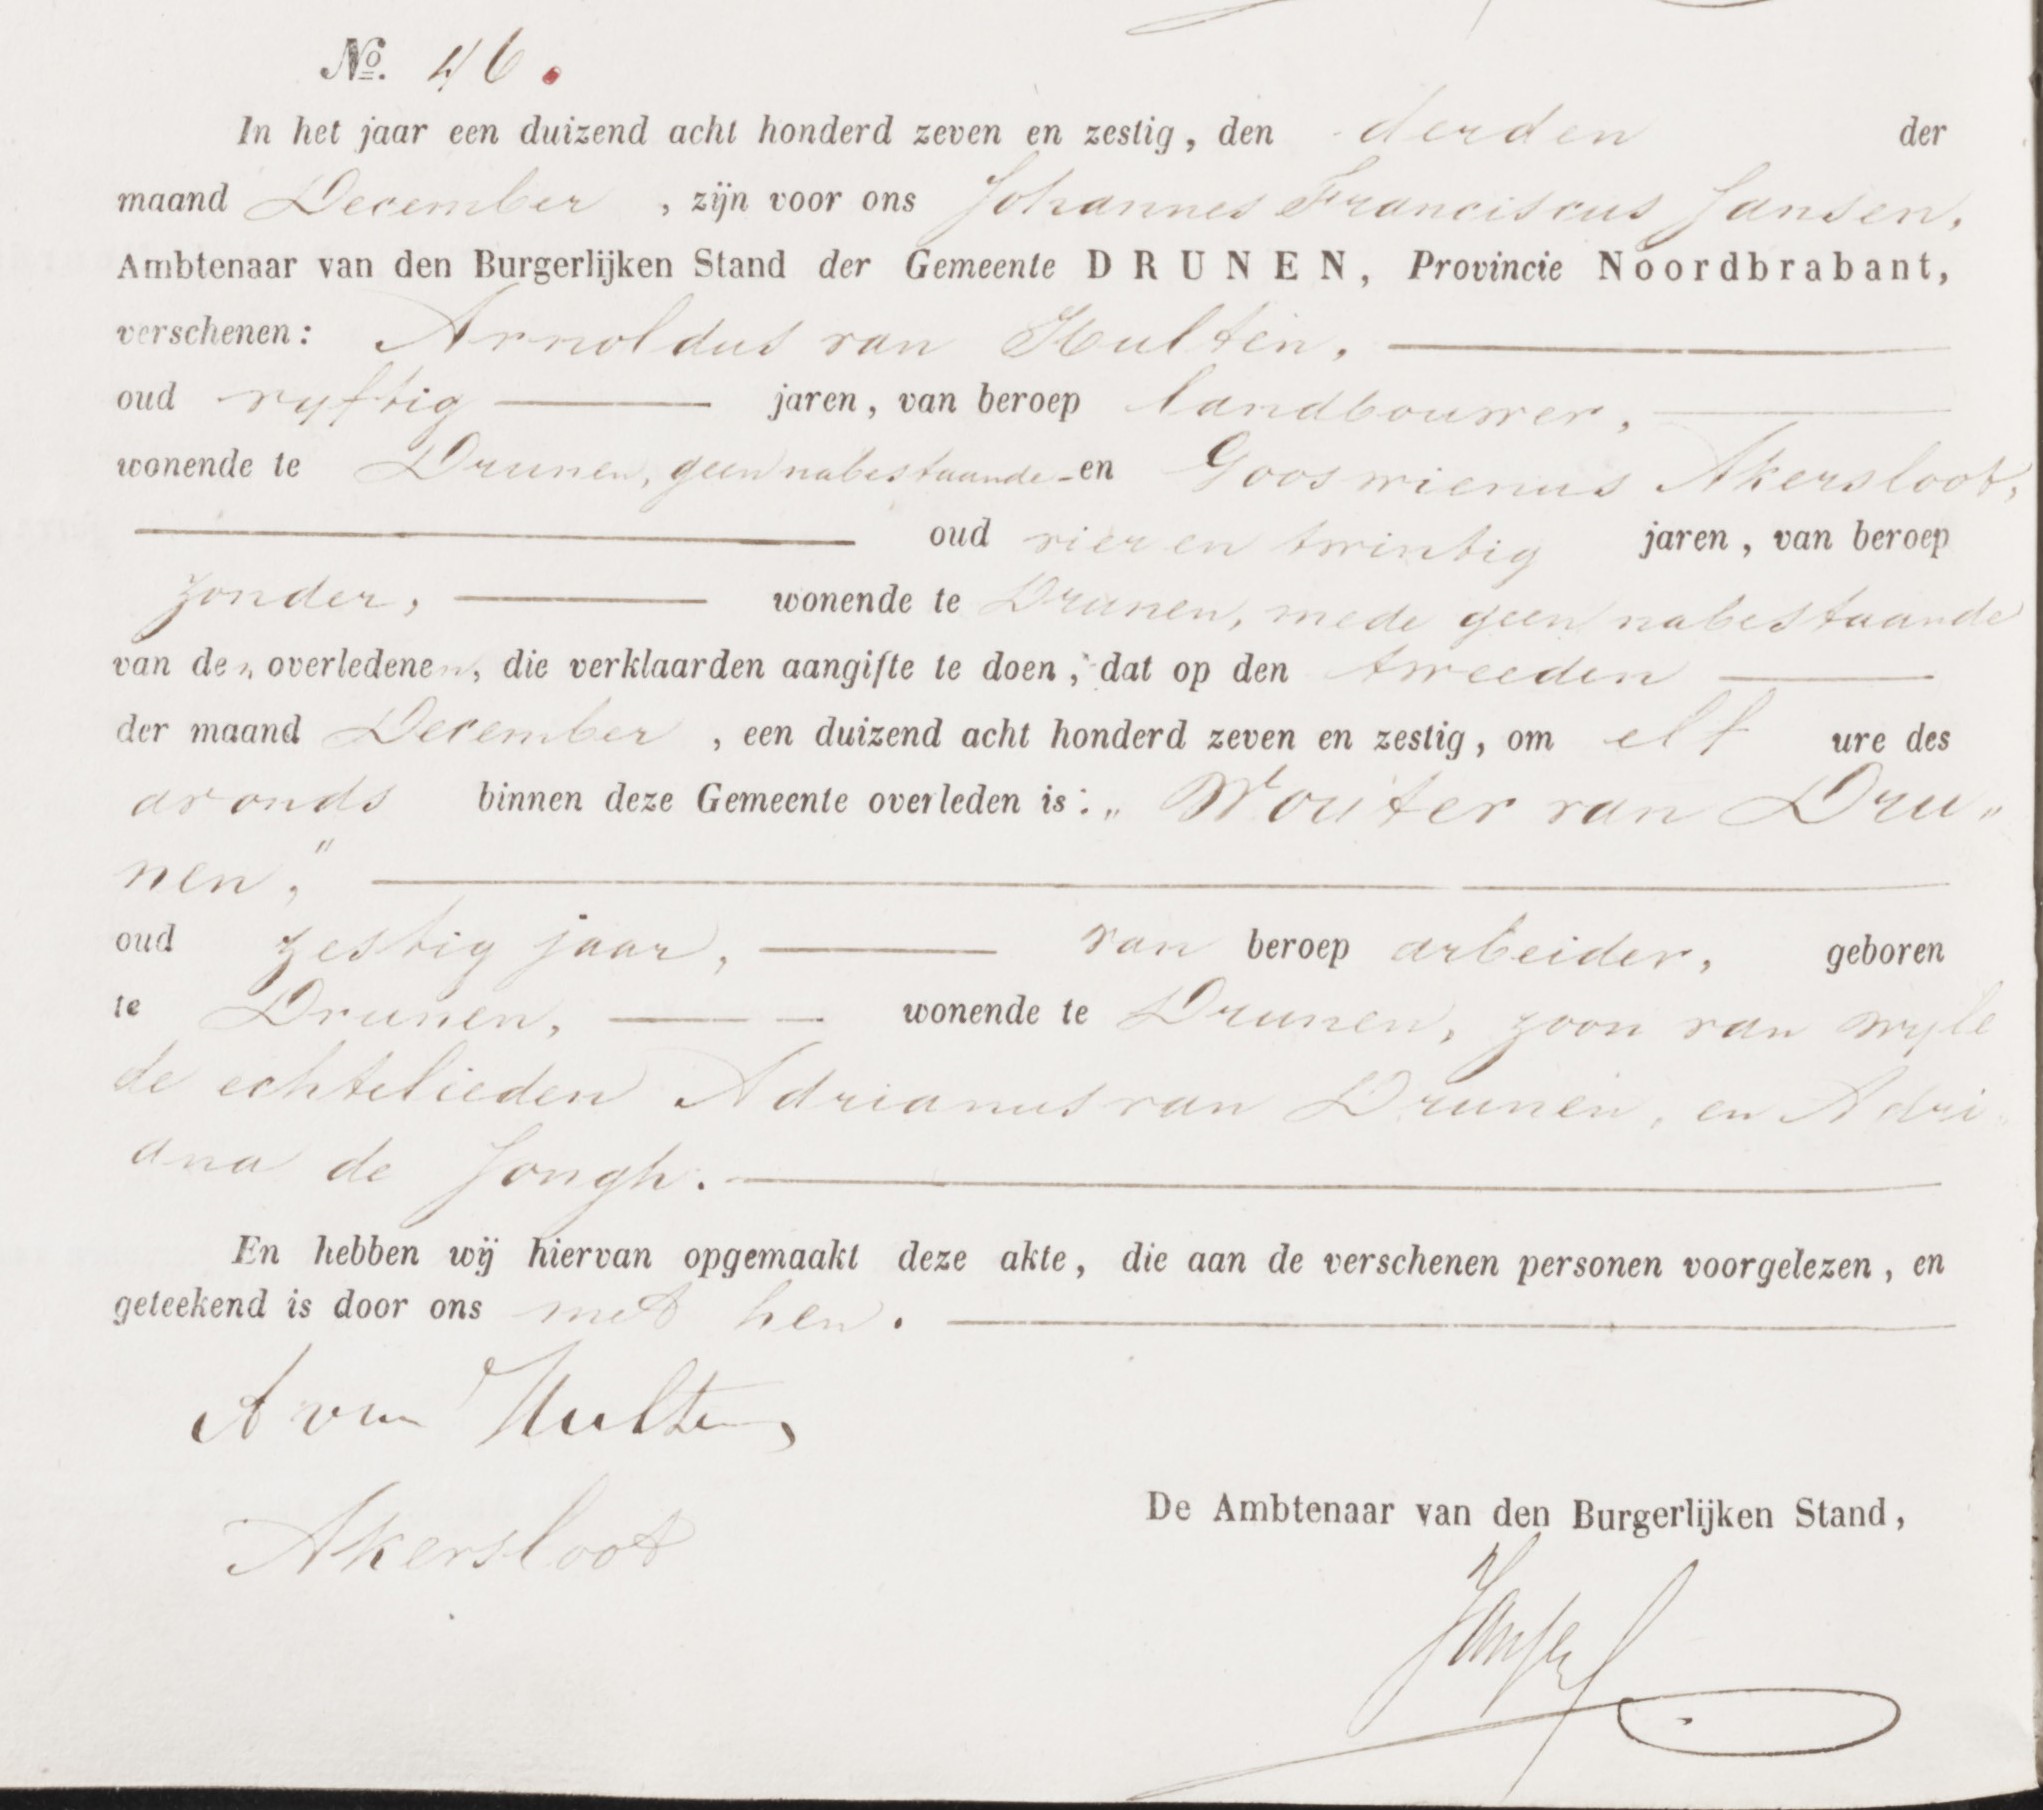 No. 46.
In het jaar een duizend acht honderd zeven en zestig, den derden der
maand December, zijn voor ons Johannes Franciscus Jansen,
Ambtenaar van den Burgerlijken Stand der Gemeente DRUNEN, Provincie Noordbrabant,
verschenen: Arnoldus van Hulten,
oud vyftig jaren, van beroep landbouwer,
wonende te Drunen, geen nabestaande en Gooswienus Akersloot,
oud vier en twintig jaren, van beroep
zonder, wonende te Drunen, mede geen nabestaande
van den overledenen, die verklaarden aangifte te doen, dat op den tweeden
der maand December, een duizend acht honderd zeven en zestig, om elf ure des
avonds binnen deze Gemeente overleden is: „Wouter van Dru„
nen,"
oud zestig jaar, van beroep arbeider, geboren
te Drunen, wonende te Drunen, zoon van wyle
de echtelieden Adrianus van Drunen, en Adri
ana de Jongh.
En hebben wij hiervan opgemaakt deze akte, die aan de verschenen personen voorgelezen, en
geteekend is door ons met hen.
A van Hulten,
Akersloot
De Ambtenaar van den Burgerlijken Stand,
Jansen